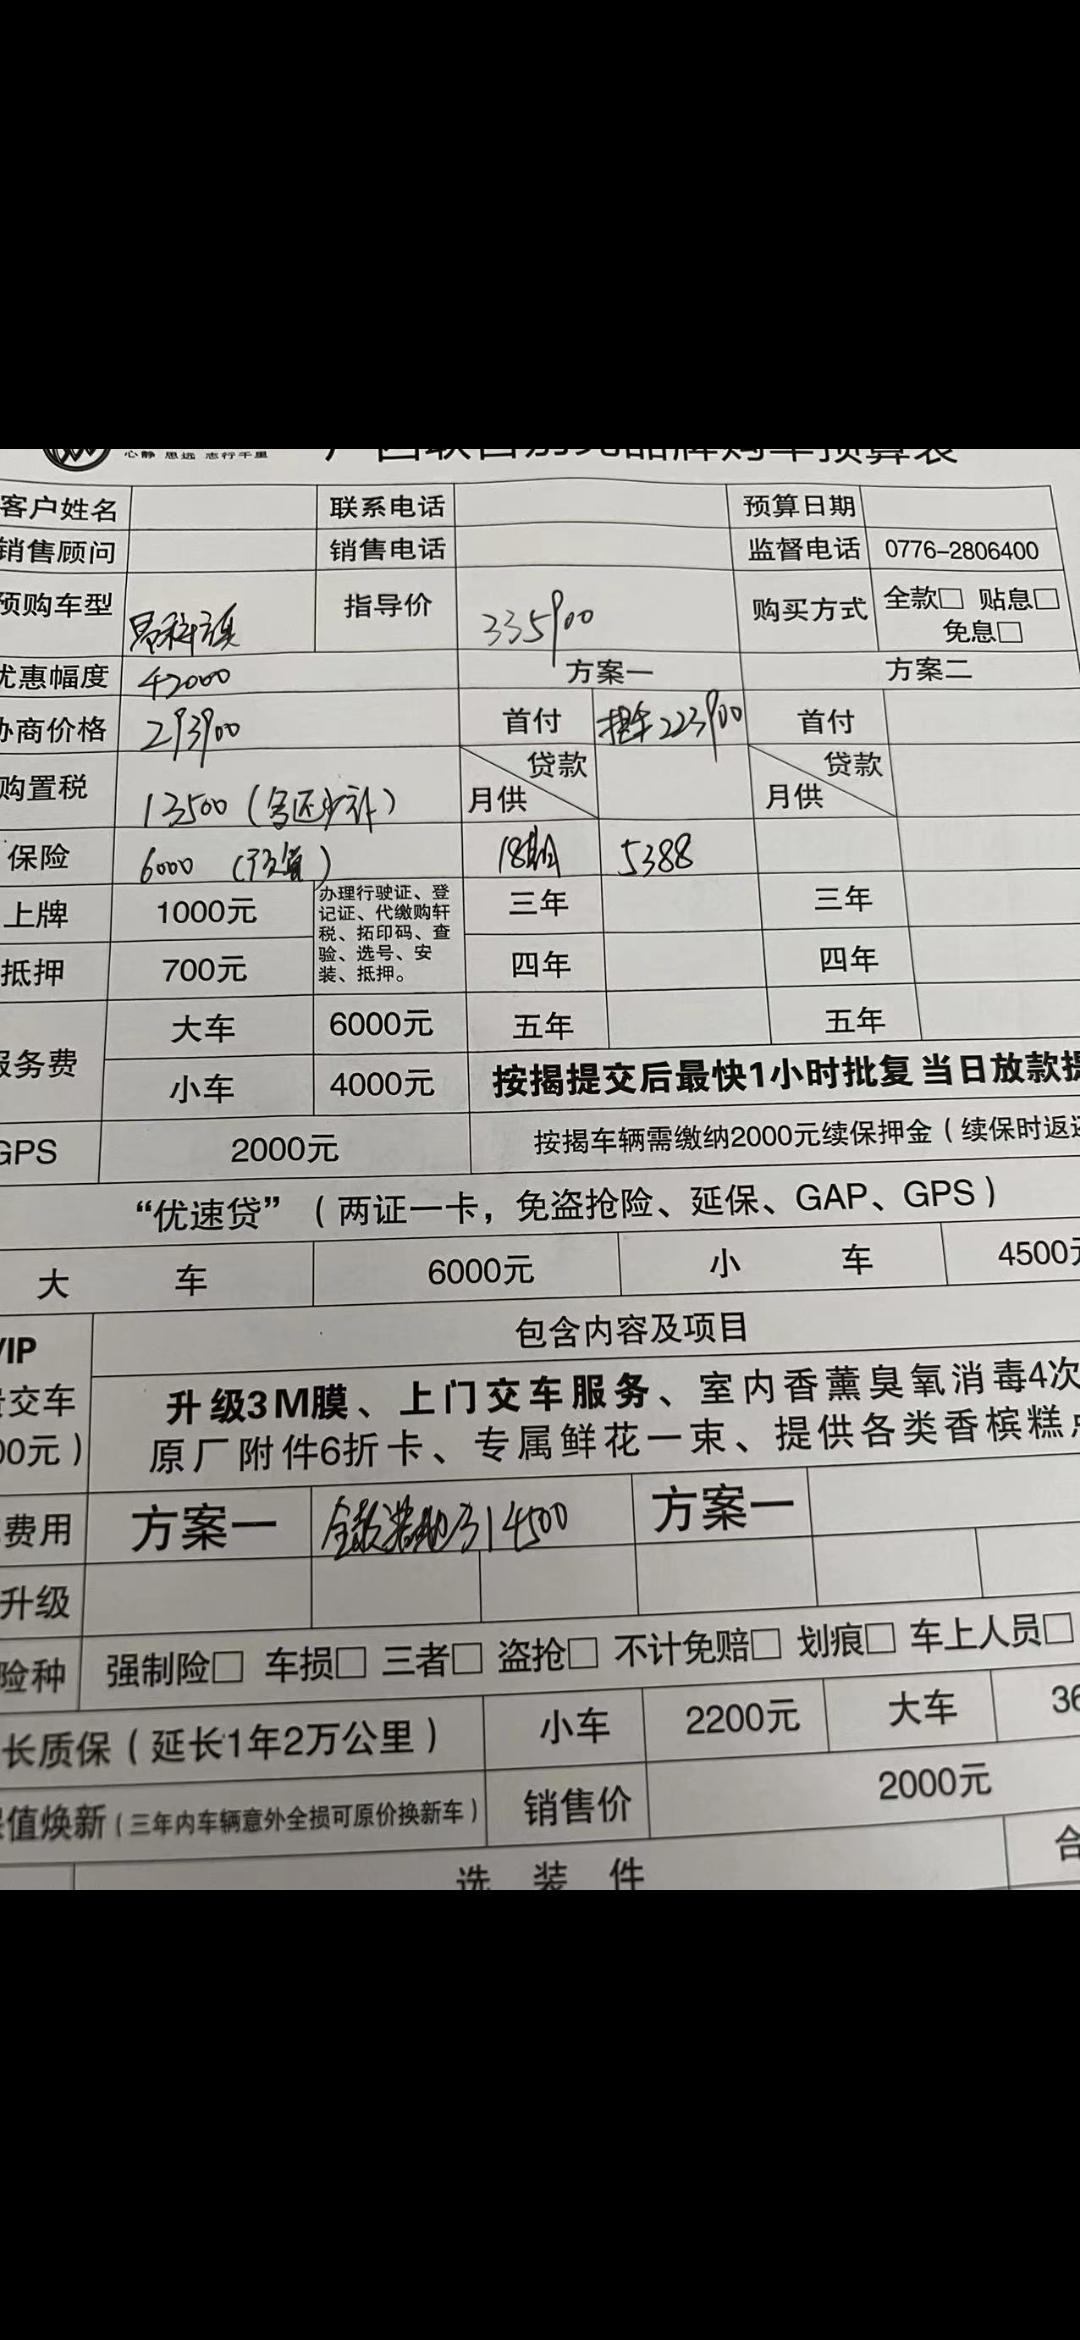 心静 思远 志行千里
广西联合别克品牌购车预算表
客户姓名 联系电话 预算日期
销售顾问 销售电话 监督电话 0776-2806400
预购车型 昂科旗 指导价 335900 购买方式 全款□ 贴息□
免息□
优惠幅度 42000 方案一 方案二
协商价格 293900 首付 提车223900 首付
购置税 13500 贷款 月供 贷款 月供
保险 6000 (预算) 18期 5388
上牌 1000元 办理行驶证、登
记证、代缴购轩
税、拓印码、查
验、选号、安
装、抵押。
三年 三年
抵押 700元 四年 四年
服务费 大车 6000元 五年 五年
小车 4000元 按揭提交后最快1小时批复 当日放款提
GPS 2000元 按揭车辆需缴纳2000元续保押金(续保时返还
“优速贷”(两证一卡，免盗抢险、延保、GAP、GPS)
大车 6000元 小车 4500元
VIP 包含内容及项目
交车 升级3M膜、上门交车服务、室内香薰臭氧消毒4次
00元) 原厂附件6折卡、专属鲜花一束、提供各类香槟糕点
费用 方案一 全款落地314500 方案一
升级
险种 强制险□ 车损□ 三者□ 盗抢□ 不计免赔□ 划痕□ 车上人员□
长质保(延长1年2万公里) 小车 2200元 大车 36
保值焕新(三年内车辆意外全损可原价换新车) 销售价 2000元
选装件 合